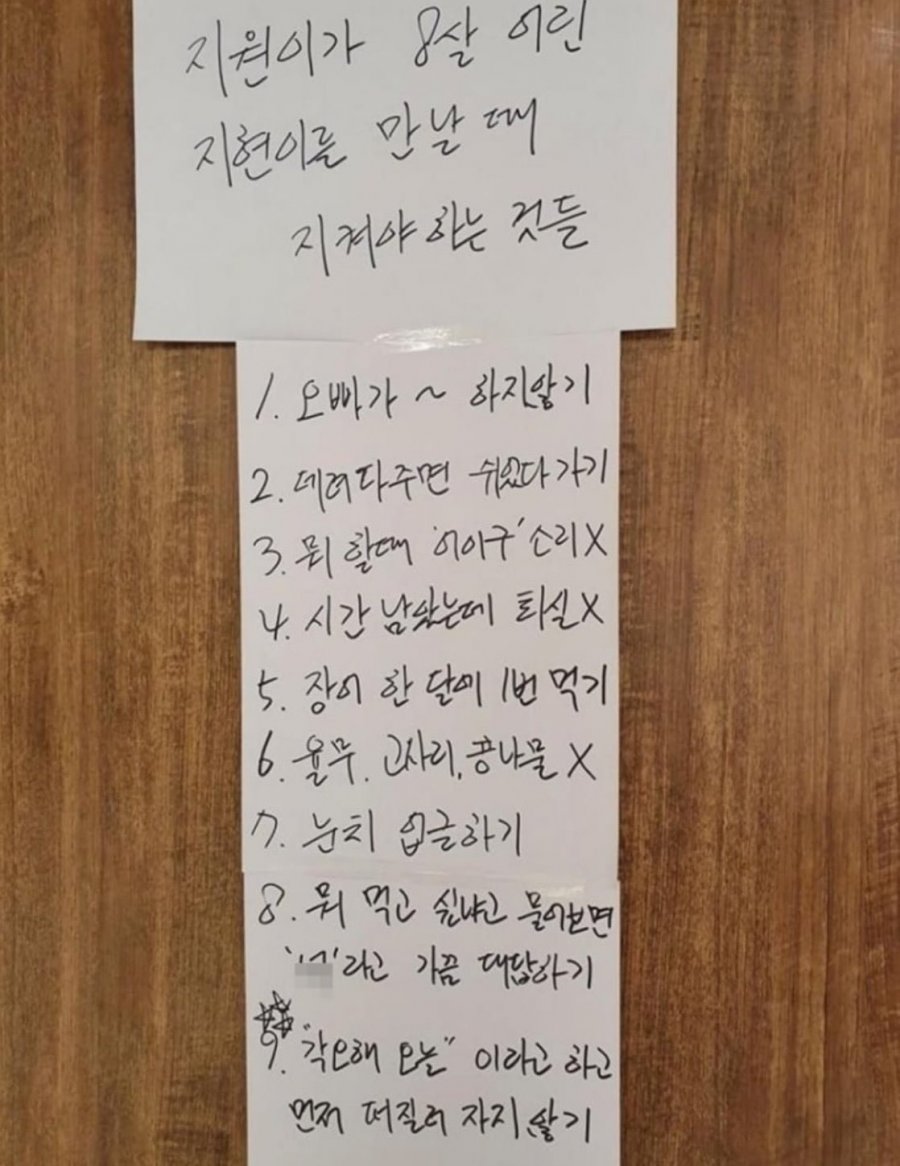 지원이가 8살 어린
지현이를 만날 때
지켜야 하는 것들
1. 오빠가 ~ 하지않기
2. 데려다주면 쉬었다 가기
3. 뭐 할때 '어이구' 소리 X
4. 시간 남았는데 퇴실 X
5. 장어 한 달에 1번 먹기
6. 율무, 고사리, 콩나물 X
7. 눈치 입금하기
8. 뭐 먹고 싶냐고 물어보면
라고 가끔 대답하기
9. "각오해 오늘" 이라고 하고
먼저 퍼질러 자지 않기